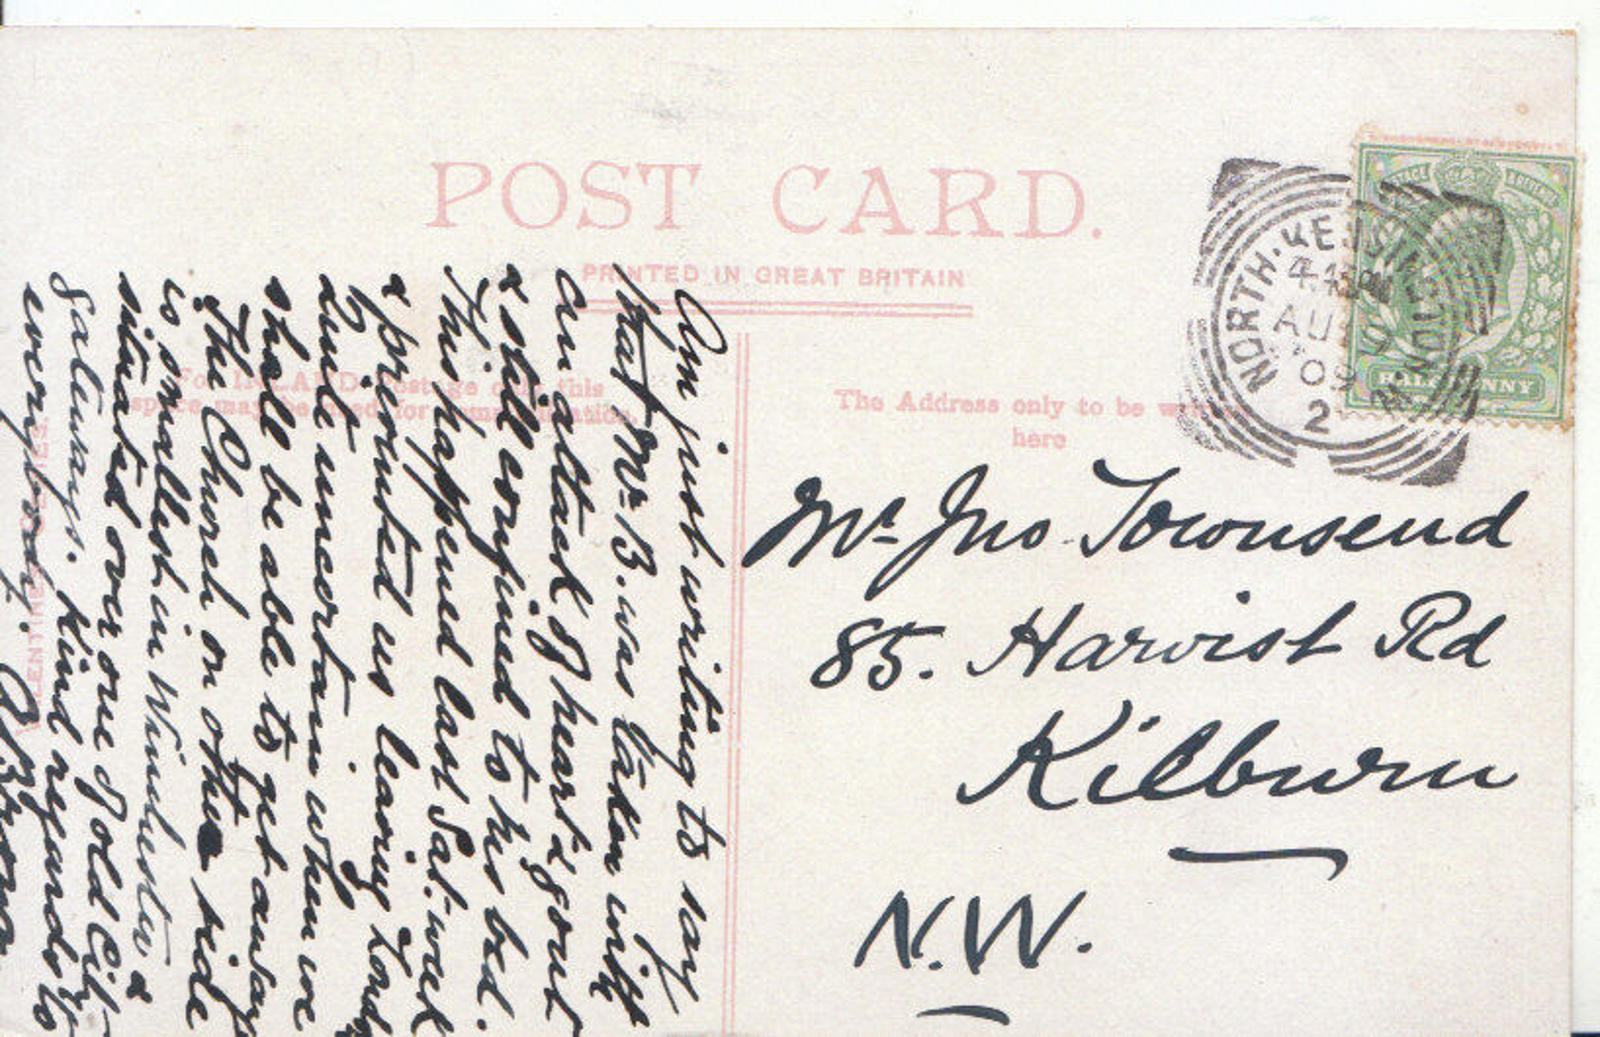 POST CARD.
PRINTED IN GREAT BRITAIN
For INLAND Postage only this
space may be used for communication.
The Address only to be written
here
NORTH·KENSINGTON
4.45PM
AU 9
09
2
POSTAGE & REVENUE
HALFPENNY
Mr Jno Townsend
85. Harvist Rd
Kilburn
N.W.
Am just writing to say
that Mr B. was taken with
an attack of heart & gout
& still confined to his bed.
This happened last Sat: week
& prevented us leaving
quite uncertain when we
shall be able to get away
The Church on other side
is smallest in Winchester &
situated over one of old City
gateways. Kind regards to
everybody. A Brown
VALENTINES SERIES.